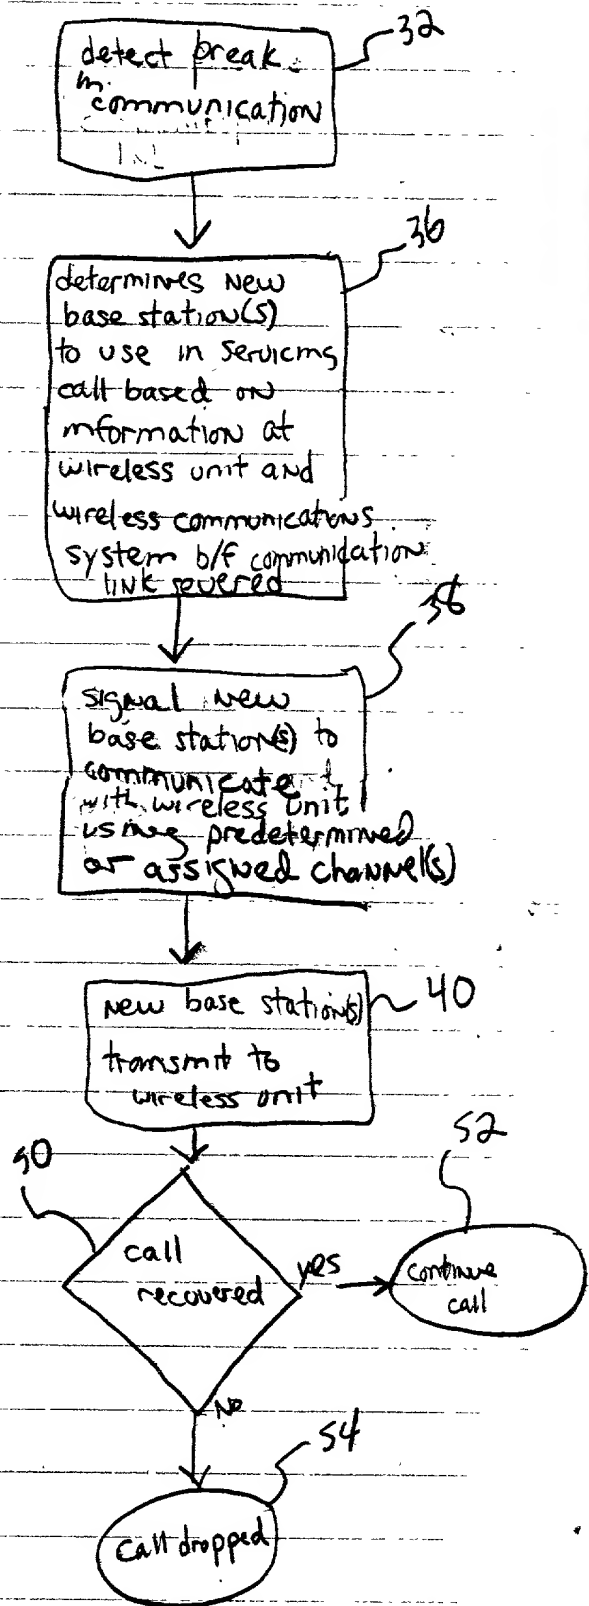 32
detect break
in
communication
36
determines new
base station(s)
to use in servicing
call based on
information at
wireless unit and
wireless communications
system b/f communication
link severed
38
signal new
base station(s) to
communicate
with wireless unit
using predetermined
or assigned channel(s)
40
new base station(s)
transmit to
wireless unit
50
call
recovered
yes
52
continue
call
No
54
call dropped